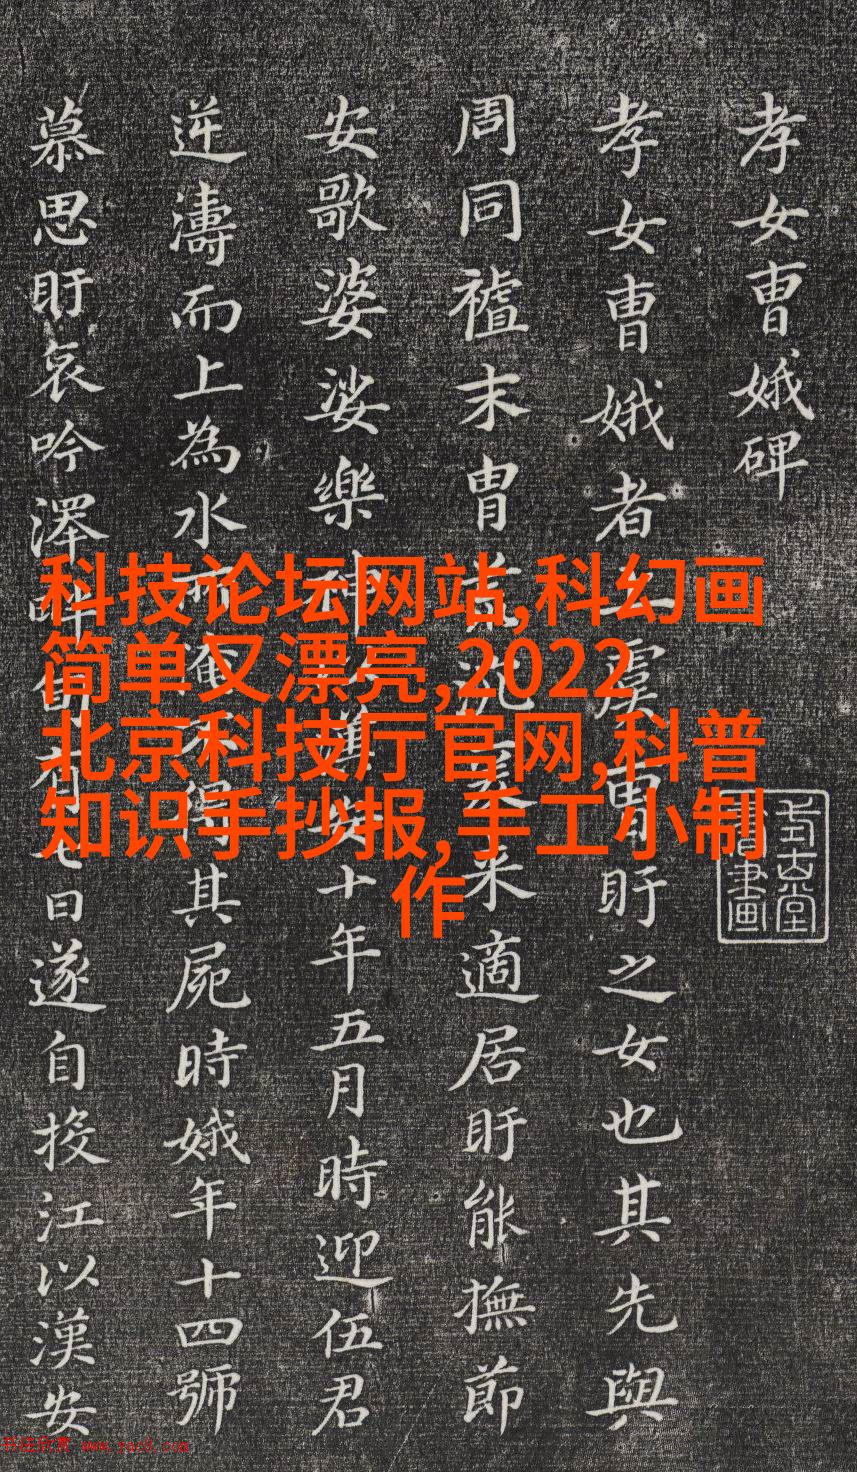 孝女曹娥碑
孝女曹娥者上虞曹盱之女也其先與
周同禮末胄荒沉爰来適居盱能撫節
安歌婆娑樂神安十年五月時迎伍君
逆濤而上為水所淹不得其屍時娥年十四號
慕思盱哀吟澤畔旬有七日遂自投江以漢安
科技论坛网站,科幻画
简单又漂亮,2022
北京科技厅官网,科普
知识手抄报,手工小制
作
书法欣赏 www.yac8.com